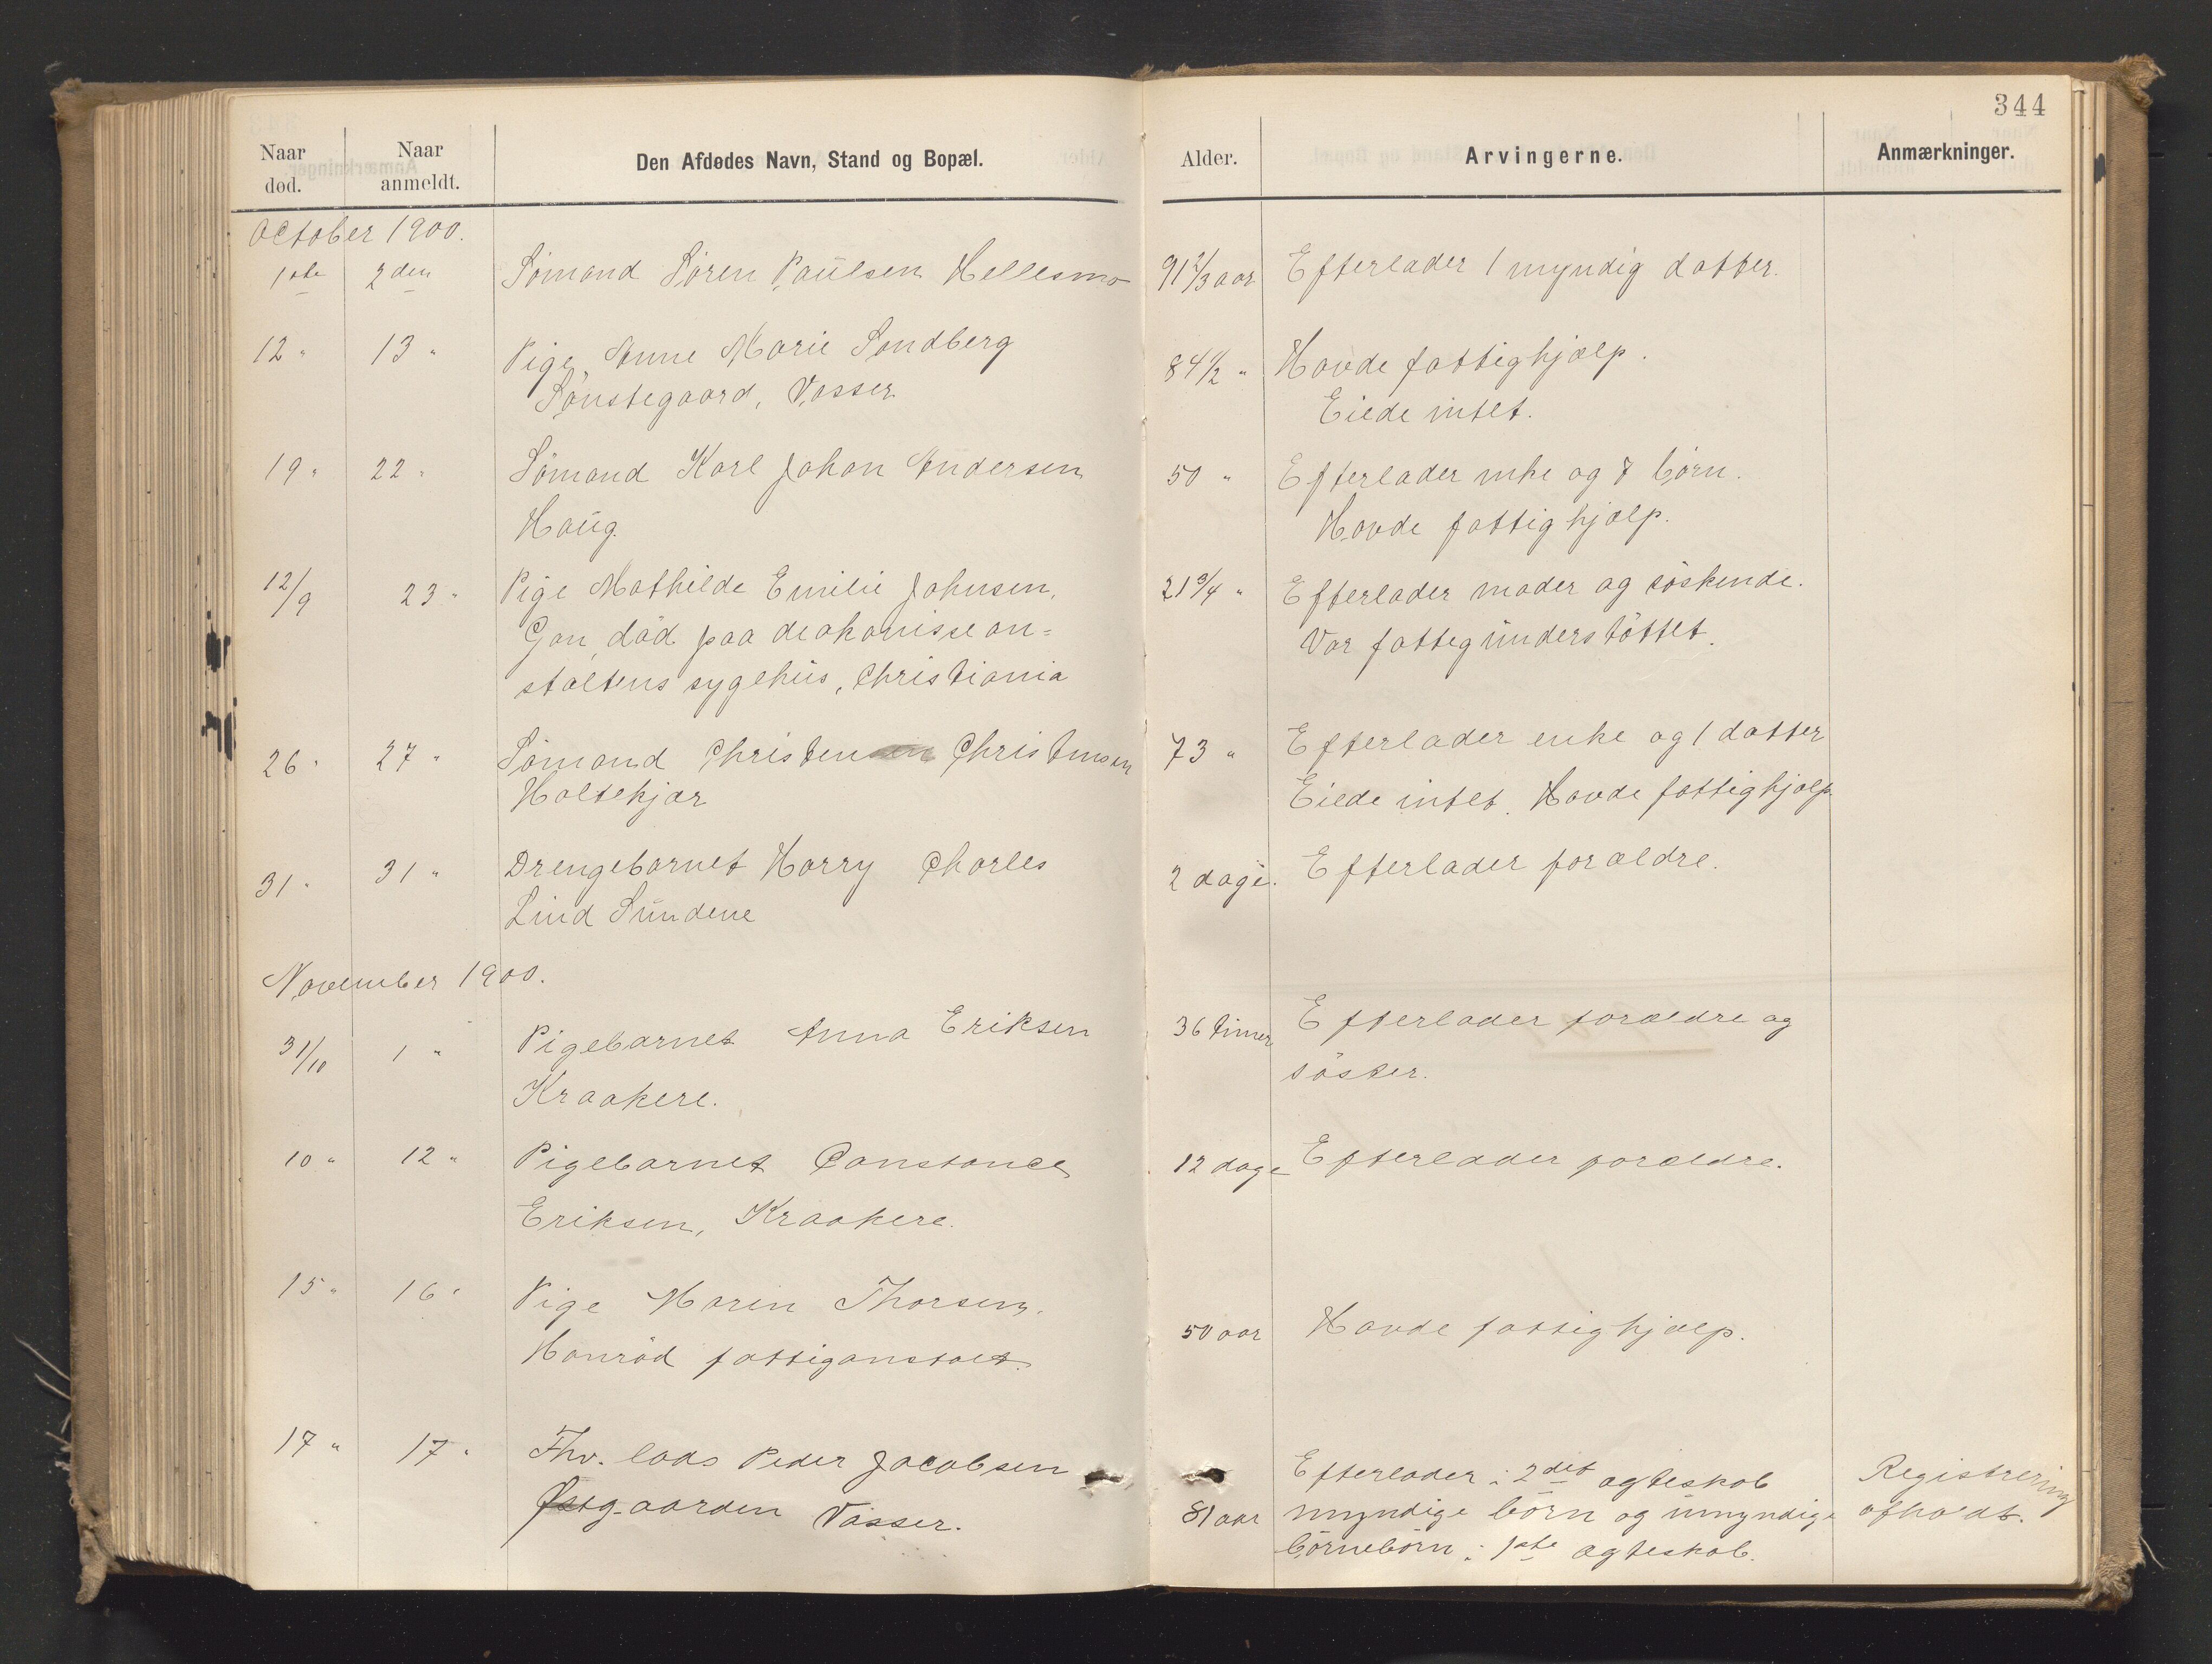 344
Naar død. Naar anmeldt. Den Afdødes Navn, Stand og Bopæl. Alder. Arvingerne. Anmærkninger.
October 1900.
1ste 2den Sömand Sören Paulsen Hellesmo 91 2/3 aar Efterlader 1 myndig datter.
12 " 13 " Pige Anne Marie Sandberg 84 1/2 " Havde fattighjælp.
Sönstegaard, Vasser Eiede intet.
19 " 22 " Sömand Karl Johan Andersen 50 " Efterlader enke og 7 börn.
Haug. Havde fattighjælp.
12/9 23 " Pige Mathilde Emilie Johnsen, 21 3/4 " Efterlader moder og söskende.
Gon, död paa diakonissean= Var fattigunderstöttet.
staltens sygehus, Christiania
26 " 27 " Sömand Christen Christensen 73 " Efterlader enke og 1 datter
Holtekjær Eiede intet. Havde fattighjælp.
31 " 31 " Drengebarnet Harry Charles 2 dage. Efterlader forældre.
Lind Sundene
November 1900.
31/10 1 " Pigebarnet Anna Eriksen 36 timer Efterlader forældre og
Kraakere. söster.
10 " 12 " Pigebarnet Constance 12 dage Efterlader forældre.
Eriksen, Kraakere.
15 " 16 " Pige Maren Thorsen, 50 aar Havde fattighjælp.
Honröd fattiganstalt.
17 " 17 " Fhv. lods Peder Jacobsen 81 aar Efterlader i 2det ægteskab Registrering
Østgaarden Vasser. myndige börn og umyndige afholdt.
börnebörn i 1ste ægteskab.